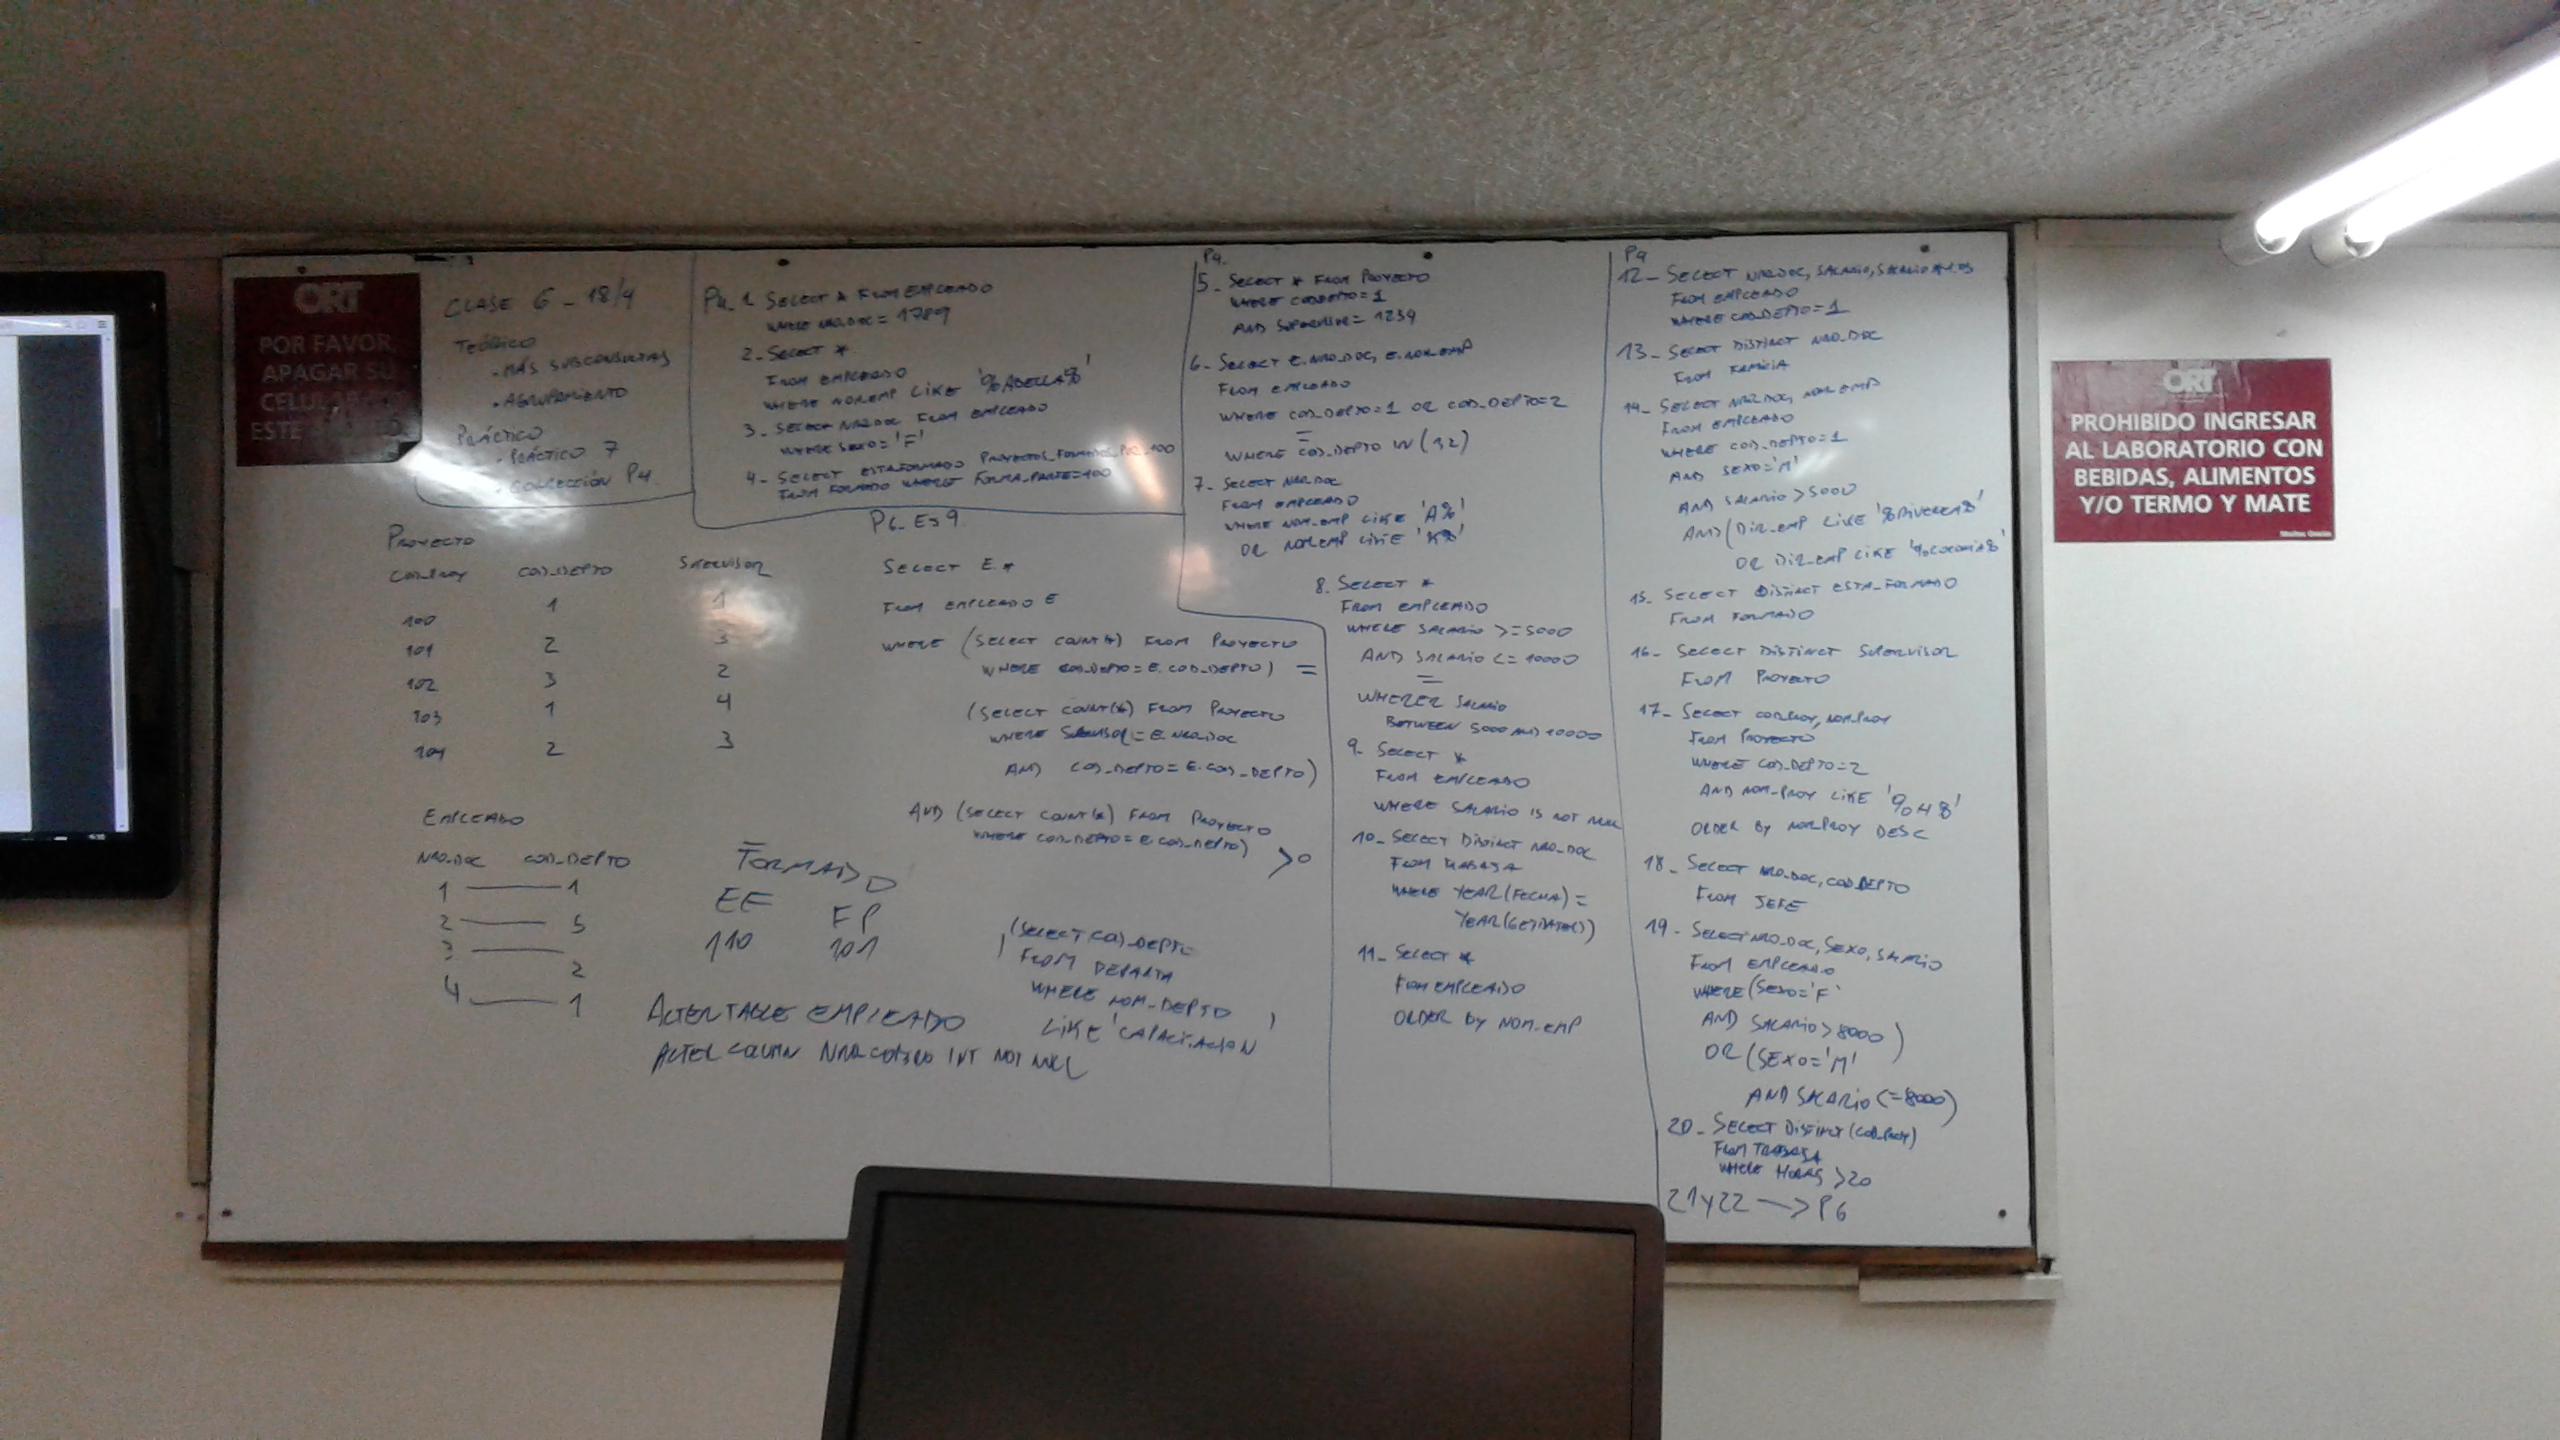 ORT
POR FAVOR,
APAGAR SU
CELULAR
ESTE
CLASE 6 - 18/4
TEÓRICO
. MÁS SUBCONSULTAS
. AGRUPAMIENTO
PRÁCTICO
. PRÁCTICO 7
. CORRECCIÓN P4
P4. 1 SELECT * FROM EMPLEADO
WHERE NRO_DOC = 1789
2- SELECT *
FROM EMPLEADO
WHERE NOM_EMP LIKE '%ABELLA%'
3- SELECT NRO_DOC FROM EMPLEADO
WHERE SEXO='F'
4- SELECT ESTA_FORMADO PROYECTOS_FORMADOS_POR_100
FROM FORMADO WHERE FORMA_PARTE=100
P6_EJ9
PROYECTO
COD_PROY COD_DEPTO SUPERVISOR
100 1 1
101 2 3
102 3 2
103 1 4
104 2 3
EMPLEADO
NRO_DOC COD_DEPTO
1 — 1
2 — 5
3 — 2
4 — 1
FORMADO
EF FP
110 101
SELECT E.*
FROM EMPLEADO E
WHERE (SELECT COUNT(*) FROM PROYECTO
WHERE COD_DEPTO = E.COD_DEPTO) =
(SELECT COUNT(*) FROM PROYECTO
WHERE = E.NRO_DOC
AND COD_DEPTO = E.COD_DEPTO)
AND (SELECT COUNT(*) FROM PROYECTO
WHERE COD_DEPTO = E.COD_DEPTO) >0
(SELECT COD_DEPTO
FROM DEPARTA
WHERE NOM_DEPTO
LIKE 'CAPACITACION')
ALTER TABLE EMPLEADO
ALTER COLUMN INT NOT NULL
P4.
5- SELECT * FROM PROYECTO
WHERE COD_DEPTO=1
AND SUPERVISOR= 1234
6- SELECT E.NRO_DOC, E.NOM_EMP
FROM EMPLEADO
WHERE COD_DEPTO=1 OR COD_DEPTO=2
=
WHERE COD_DEPTO IN (1,2)
7- SELECT NRO_DOC
FROM EMPLEADO
WHERE NOM_EMP LIKE 'A%'
OR NOM_EMP LIKE 'K%'
8. SELECT *
FROM EMPLEADO
WHERE SALARIO >=5000
AND SALARIO <= 10000
=
WHERER SALARIO
BETWEEN 5000 AND 10000
9- SELECT *
FROM EMPLEADO
WHERE SALARIO IS NOT NULL
10- SELECT DISTINCT NRO_DOC
FROM TRABAJA
WHERE YEAR(FECHA) =
YEAR(GETDATE())
11- SELECT *
FROM EMPLEADO
ORDER BY NOM_EMP
P4
12- SELECT NRO_DOC, SALARIO, SALARIO*1.05
FROM EMPLEADO
WHERE COD_DEPTO=1
13- SELECT DISTINCT NRO_DOC
FROM FAMILIA
14- SELECT NRO_DOC, NOM_EMP
FROM EMPLEADO
WHERE COD_DEPTO=1
AND SEXO='M'
AND SALARIO >5000
AND (DIR_EMP LIKE '%RIVERA%'
OR DIR_EMP LIKE '%COLONIA%'
15- SELECT DISTINCT ESTA_FORMADO
FROM FORMADO
16- SELECT DISTINCT SUPERVISOR
FROM PROYECTO
17- SELECT COD_PROY, NOM_PROY
FROM PROYECTO
WHERE COD_DEPTO=2
AND NOM_PROY LIKE '%4%'
ORDER BY NOM_PROY DESC
18- SELECT NRO_DOC, COD_DEPTO
FROM JEFE
19- SELECT NRO_DOC, SEXO, SALARIO
FROM EMPLEADO
WHERE (SEXO='F'
AND SALARIO >8000)
OR (SEXO='M'
AND SALARIO <=8000)
20- SELECT DISTINCT (COD_PROY)
FROM TRABAJA
WHERE HORAS >20
21y22 —> P6
ORT
PROHIBIDO INGRESAR
AL LABORATORIO CON
BEBIDAS, ALIMENTOS
Y/O TERMO Y MATE
Muchas Gracias